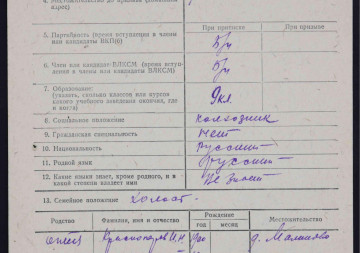 взрос)
При призыве
5. Партийность (время вступления в члены
или кандидаты ВКП(б)
б/п
6. Член или кандидат ВЛКСМ (время вступ-
ления в члены или кандидаты ВЛКСМ)
б/п
7. Образование:
(указать, сколько классов или курсов
какого учебного заведения окончил, где
и когда)
9 кл.
8. Социальное положение
колхозник
9. Гражданская специальность
нет
10. Национальность
русский
11. Родной язык
русский
12. Какие языки знает, кроме родного, и в
какой степени владеет ими
не знает
13. Семейное положение холост
Родство
Фамилия, имя и отчество
Рождение
год
месяц
Местожительство
отец
И.Н.
д.